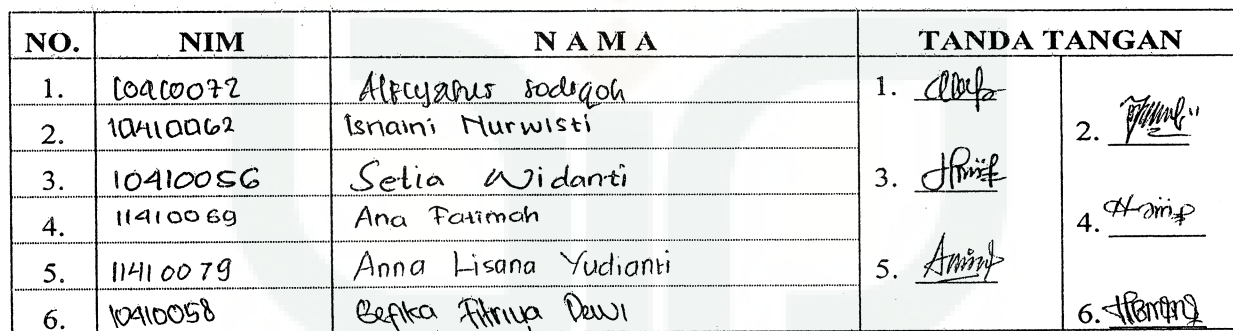 NO. NIM NAMA TANDA TANGAN
1. 10410072 sodiqoh 1.
2. 10410062 Isnaini Nurwisti 2.
3. 10410056 Setia Widanti 3.
4. 11410069 Ana Fatimah 4.
5. 11410079 Anna Lisana Yudianti 5.
6. 10410058 Fitriya Dewi 6.